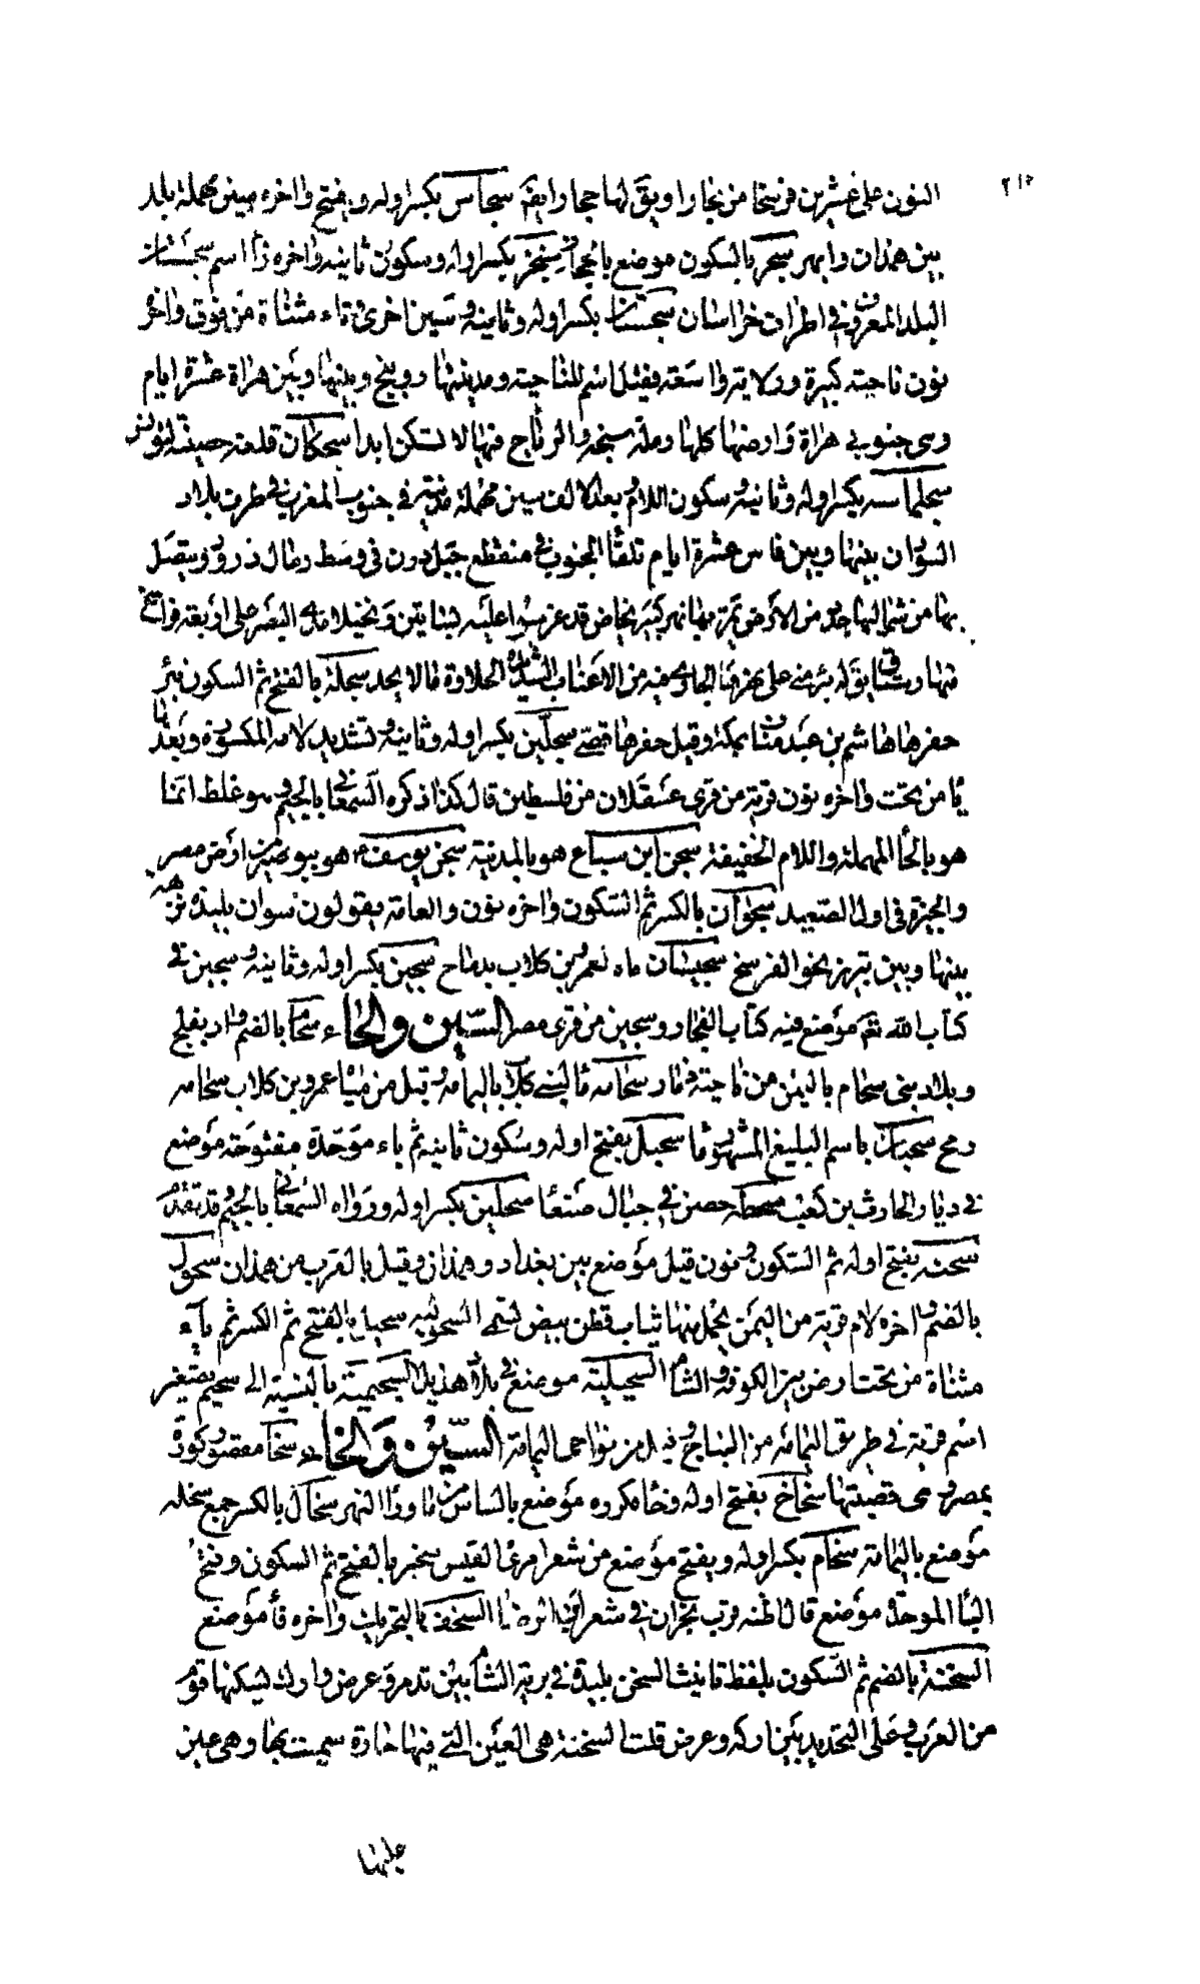 ٢١٥
النون على عشرين فرسخا من بخارا ويق لها ججار ايضا سجاس بكسر اوله ويفتح واخره سين مهملة بلد
بين همذان وابهر سجر بالسكون موضع بالحجاز سجز بكسر اوله وسكون ثانيه واخره زا اسم سجستان
البلد المعروف في اطراف خراسان سجستان بكسر اوله وثانيه وسين اخرى وتاء مثناة من فوق واخره
نون ناحيته كبيرة وولاية واسعة فقيل اسم للناحيته ومدينتها زرنج وبينها وبين هراة عشرة ايام
وهي جنوبي هراة وارضها كلها رملة سبخه والرياح فيها لا تسكن ابدا سجكان قلعة حصينة
سجلماسه بكسر اوله وثانيه وسكون اللام وبعد الالف سين مهملة مدينة في جنوب المغرب في طرف بلاد
السودان بينها وبين فاس عشرة ايام تلقا الجنوب في منقطع جبل درن في وسط رمال زرود ويتصل
بها من شماليها جدد من الارض تمر بها نهر كبير يخاض قد غرسوا عليه بساتين ونخيلا مد البصر على اربعة فراسخ
منها رستاق يقوله على نهرها الجاري فيه من الاعناب الشديدة الحلاوة مالا يحد سجلة بالفتح ثم السكون بئر
حفرها هاشم بن عبد مناف بمكة وقيل حفرها قصي سجلين بكسر اوله وثانيه وتشديد لامه المكسورة وبعدها
يا من تحت واخره نون قرية من قرى عسقلان من فلسطين قال كذا ذكره السمعاني بالجيم وهو غلط انما
هو بالحا المهملة واللام الخفيفة سجن ابن سباع هو بالمدينة سجن يوسف م هو ببوصير من ارض مصر
والجيزة في اول الصعيد سجوان بالكسر ثم السكون واخره نون والعامة يقولون سوان بليدة نزهه
بينها وبين تبريز نحو الفرسخ ماء لعمرو بن كلاب بدماح سجين بكسر اوله وثانيه سجين في
كتاب الله تعم موضع فيه كتاب الفجار وسجين من قرى مصر السين والحاء سحا بالضم واد بفلج
وبلاد بنى سحام باليمن من ناحيته ذمار سحامه ما لبني كلاب باليمامه وقيل من مياه عمرو بن كلاب سحامه
رمح سحبان باسم البليغ المشهور ما سحبل بفتح اوله وسكون ثانيه ثم باء موحدة مفتوحة موضع
في ديار الحارث بن كعب سحطه حصن في جبال صنعا سحلين بكسر اوله ورواه السمعاني بالجيم وقد تقدم
سحنه بفتح اوله ثم السكون ونون قيل موضع بين بغداد وهمذان وقيل بالقرب من همذان سحول
بالضم واخره لام قرية من اليمن يحمل منها ثياب قطن بيض تسمى السحوليه بالفتح ثم الكسر ثم ياء
مثناة من تحت ارض بين الكوفة والشام السحيلية موضع في بلاد هذيل السحيمية بالنسبته الى سحيم تصغير
اسم قرية في طريق اليمامه من النباج وفيه ايضا من نواحي اليمامة السين والخاء سخا مقصور كورة
بمصر وهى قصبتها سخاخ بفتح اوله وخا مكرره موضع بالشاش من ما ورا النهر سخال بالكسر جمع سخله
موضع باليمامة سخام بكسر اوله ويفتح موضع من شعر امرئ القيس سخبر بالفتح ثم السكون وفتح
البا الموحده موضع قال اظنه قرب نجران في شعر السخف بالتحريك واخره فا موضع
السخنة بالضم ثم السكون بلفظ تانيث السخن بليدة في برية الشام بين تدمر وعرض وارك يسكنها قوم
من العرب وعلى التحديد بين ارك وعرض قلت السخنة هي العين التي فيها حارة سميت بها وهى عين
عليها